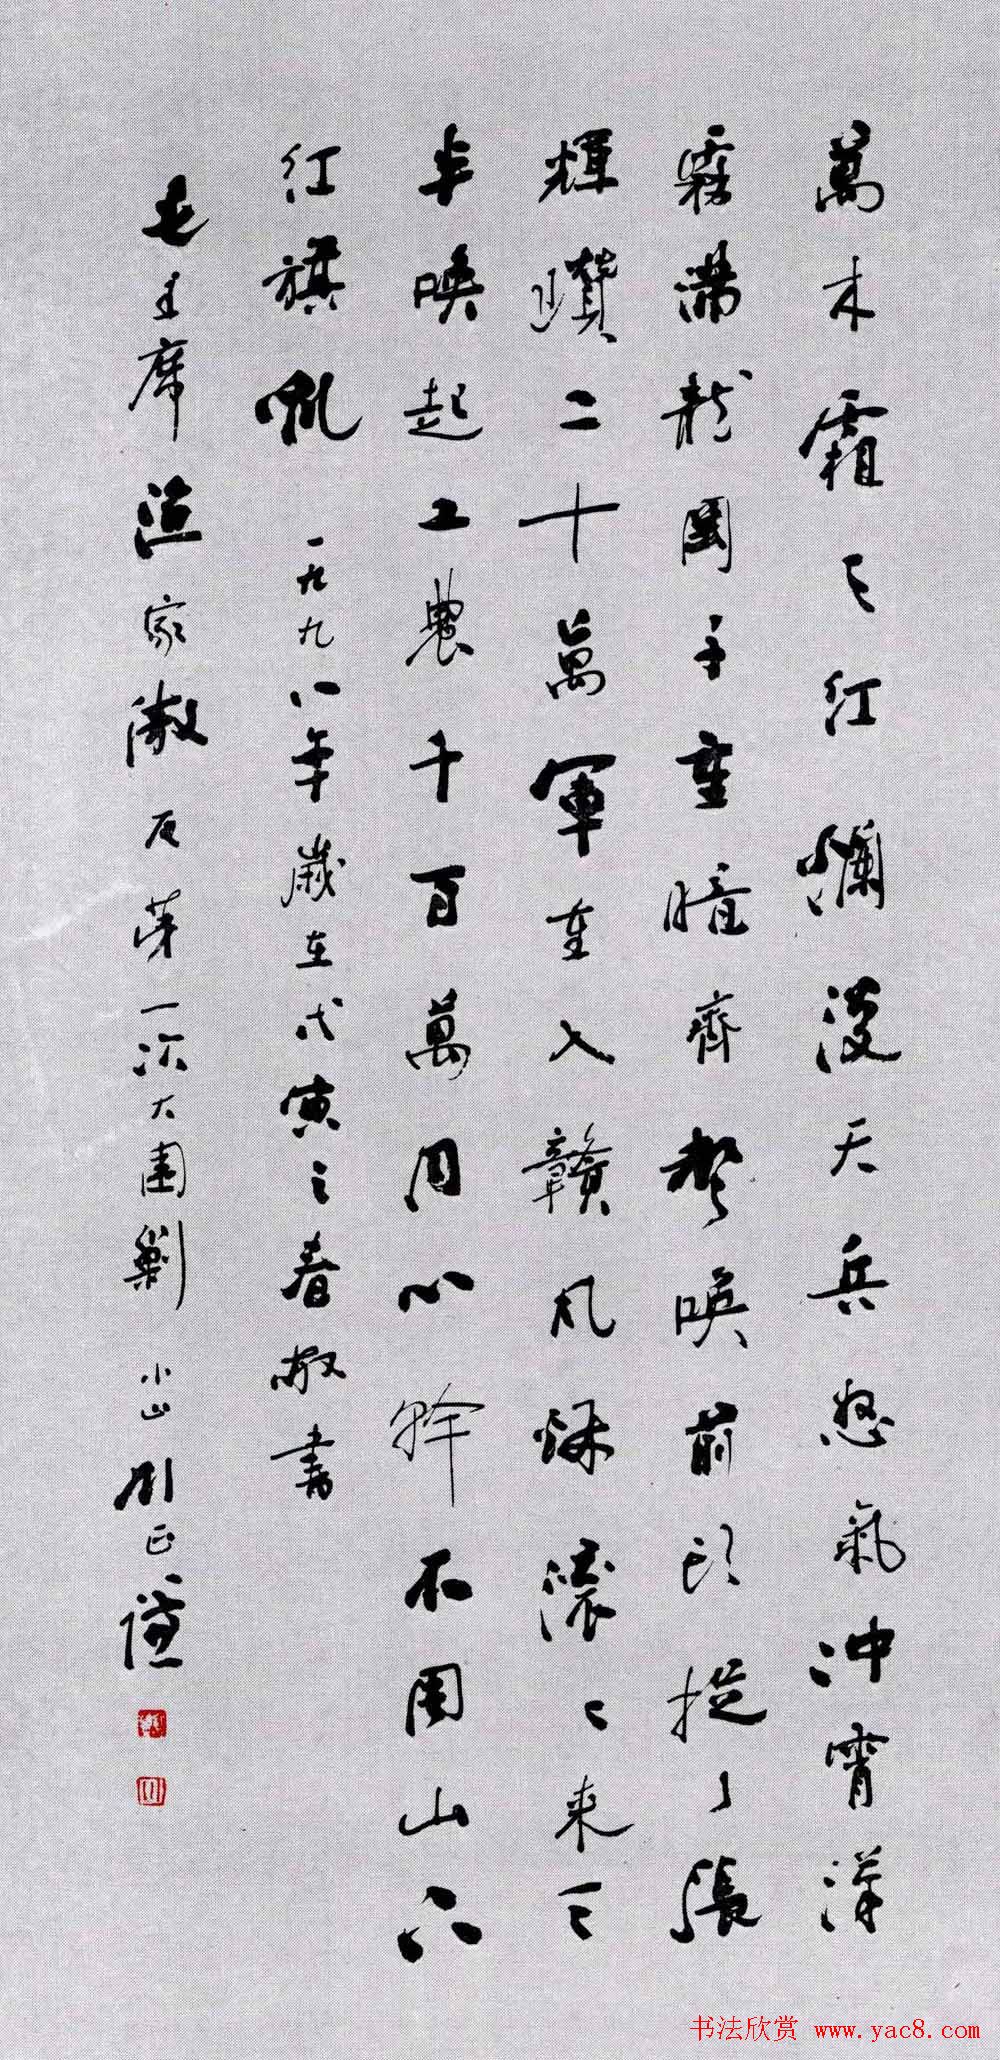 萬木霜天红爛漫天兵怒氣冲霄漢
霧滿龍岡千重暗齊聲唤前頭捉了張
輝瓚二十萬軍重入贛風烟滾〻来天
半唤起工農千百萬同心幹不周山下
红旗亂 一九九八年歲在戊寅之春敬書
毛主席漁家傲反第一次大圍剿 小山劉正謙
书法欣赏 www.yac8.com